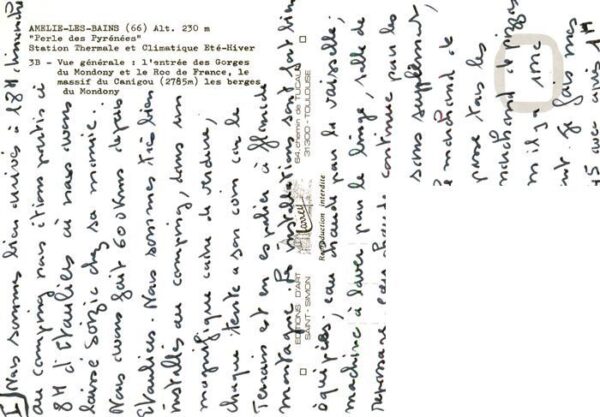 AMELIE-LES-BAINS (66) Alt. 230 m
"Perle des Pyrénées"
Station Thermale et Climatique Eté-Hiver
3B - Vue générale : l'entrée des Gorges
du Mondony et le Roc de France, le
massif du Canigou (2785m) les berges
du Mondony
I) Nous sommes bien arrivés à 18H dimanche
au camping nous étions partis à
8H d'Etauliers où nous avons
laissé Soizic chez sa mamie.
Nous avons fait 600 Kms depuis
Etauliers. Nous sommes très bien
installés au camping, dans un
magnifique cadre de verdure,
chaque tente a son coin car le
Terrain est en espalier à flanc de
montagne. Les installations sont très bien
équipées, eau chaude pour la vaisselle,
machine à laver pour le linge, salle de
repassage, eau chaude continue pour les
EDITIONS D'ART
SAINT-SIMON
larrey
64, chemin de TUCAUT
31300 - TOULOUSE
Reproduction interdite
sans supplément
marchand de
passe tous les
marchand de
il y a 1
Je fais mes
45 avec 1